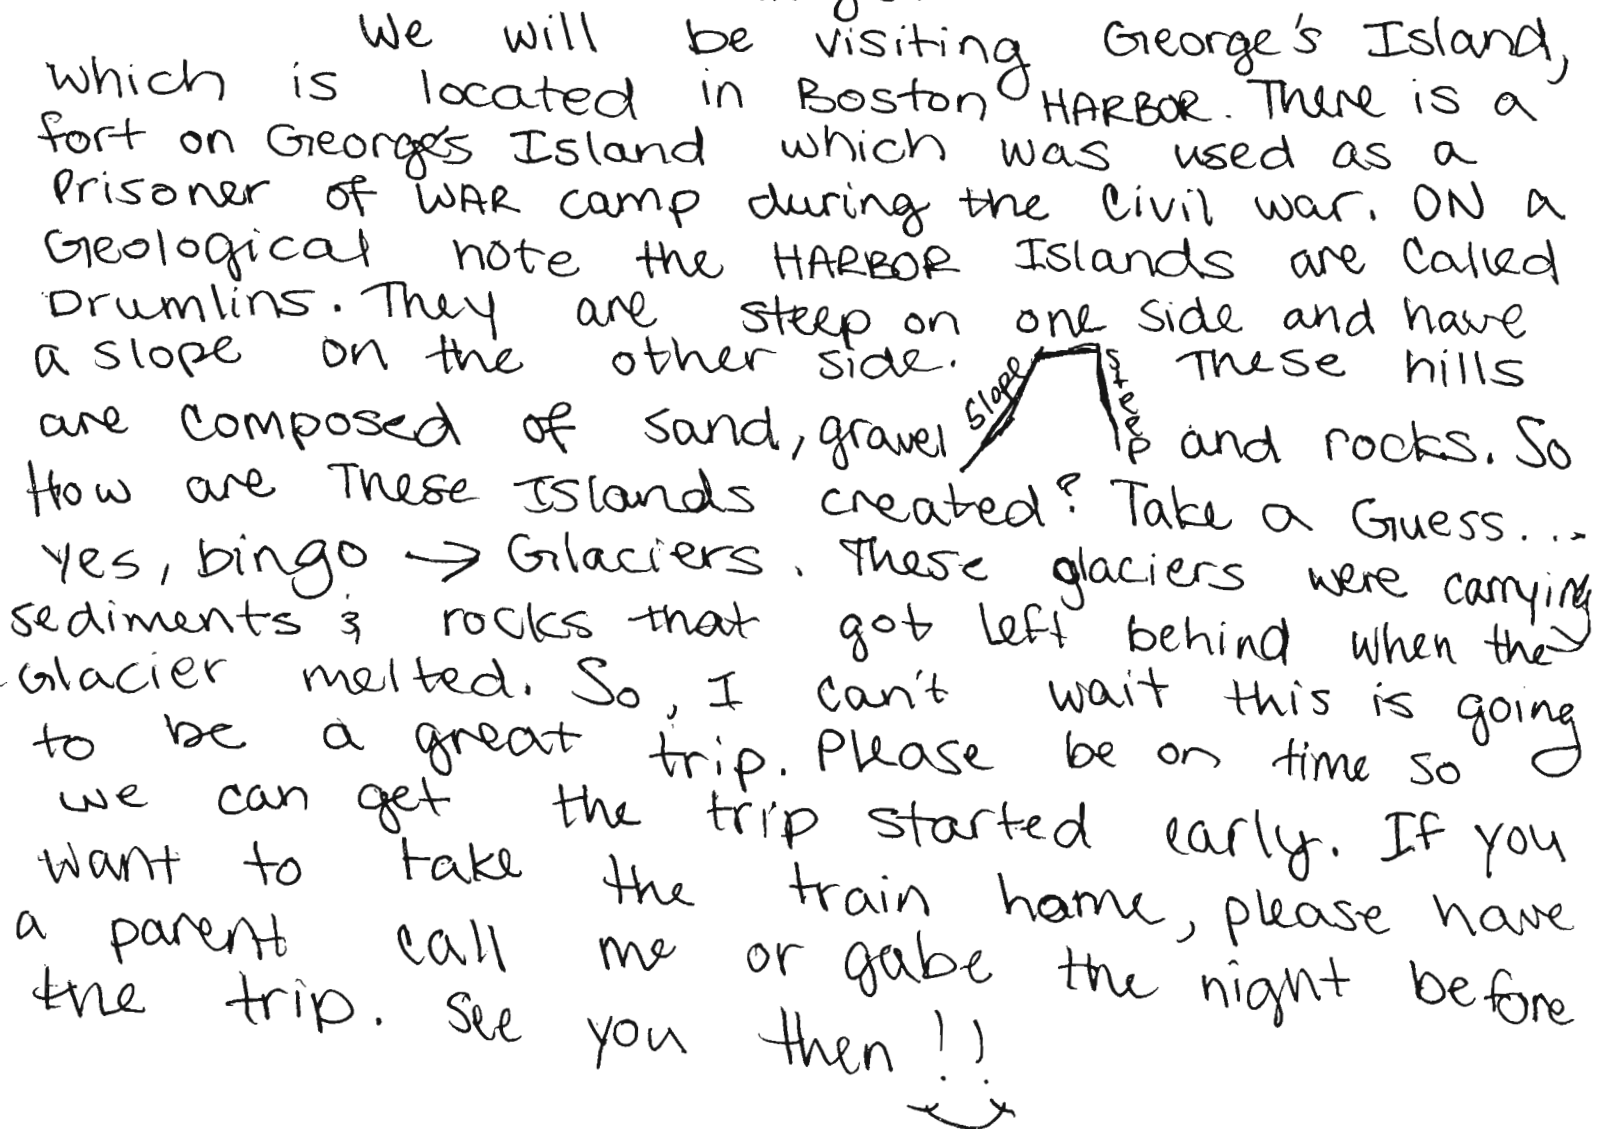 We will be visiting George's Island,
which is located in Boston HARBOR. There is a
fort on George's Island which was used as a
Prisoner of WAR camp during the Civil war. ON a
Geological note the HARBOR Islands are Called
Drumlins. They are steep on one side and have
a slope on the other side. These hills
Slope
steep
are composed of sand, gravel and rocks. So
How are These Islands created? Take a Guess...
yes, bingo → Glaciers. These glaciers were carrying
sediments & rocks that got left behind when the
Glacier melted. So, I can't wait this is going
to be a great trip. Please be on time so
we can get the trip started early. If you
want to take the train home, please have
a parent call me or gabe the night before
the trip. See you then!!